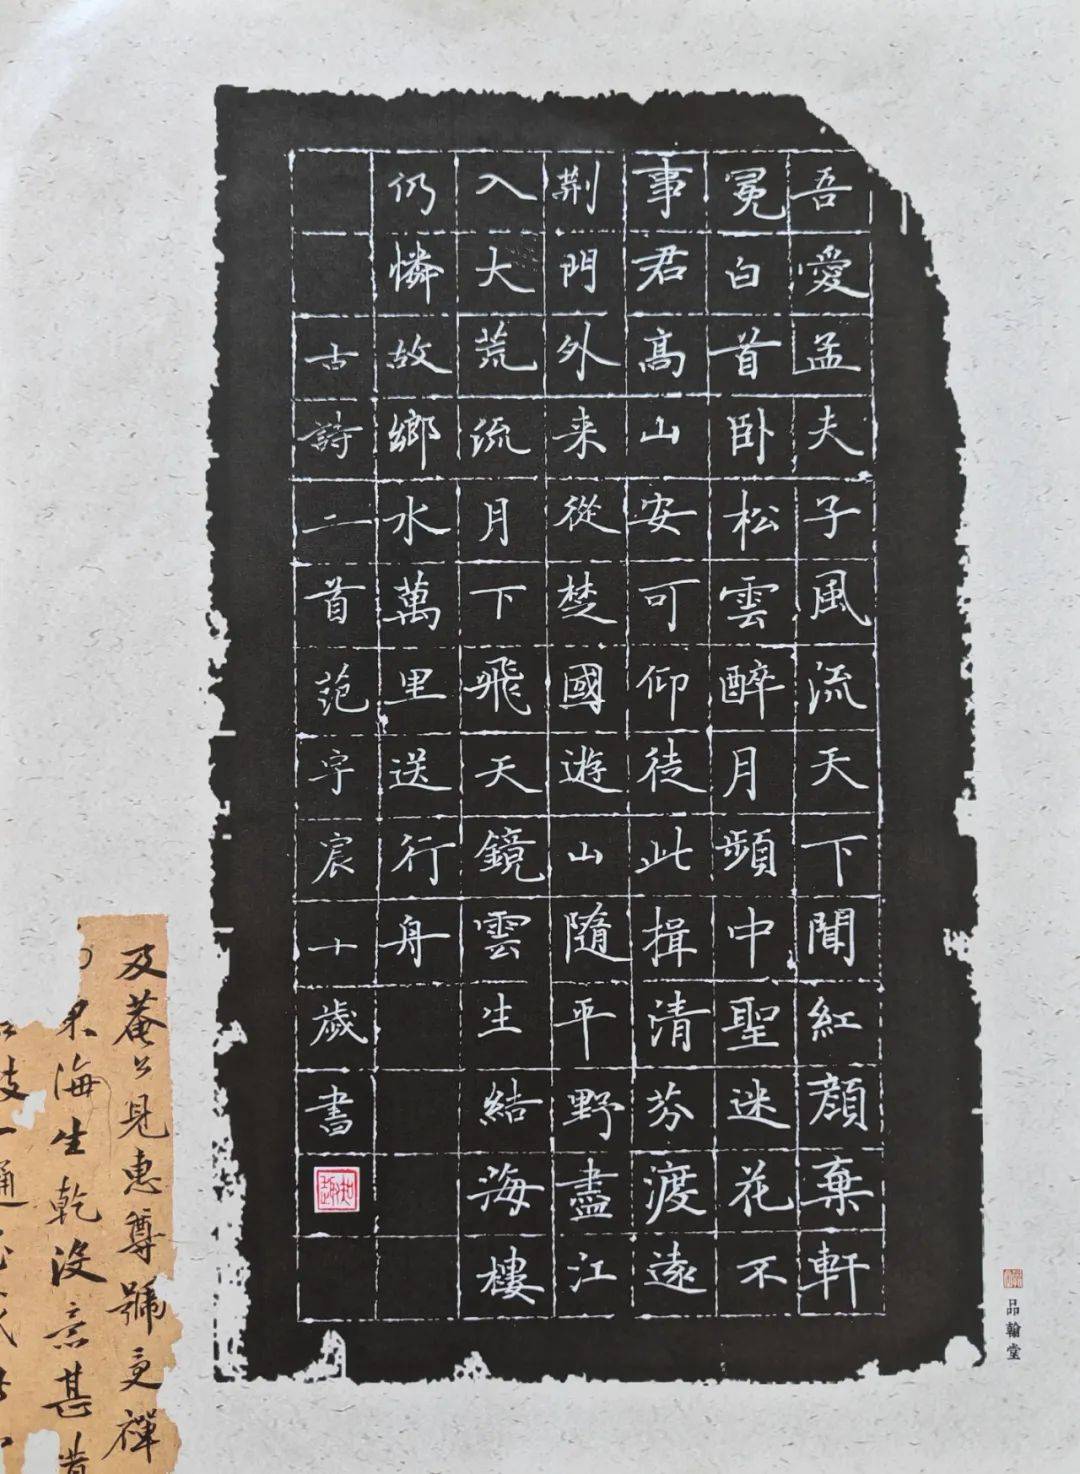 吾愛孟夫子風流天下聞紅顔棄軒
冕白首卧松雲醉月頻中聖迷花不
事君高山安可仰徒此揖清芬渡遠
荆門外来從楚國遊山隨平野盡江
入大荒流月下飛天鏡雲生結海樓
仍憐故鄉水萬里送行舟
古詩二首范宇宸十歲書
品翰堂
及菴公見惠尊號更禪
海生乾没意甚